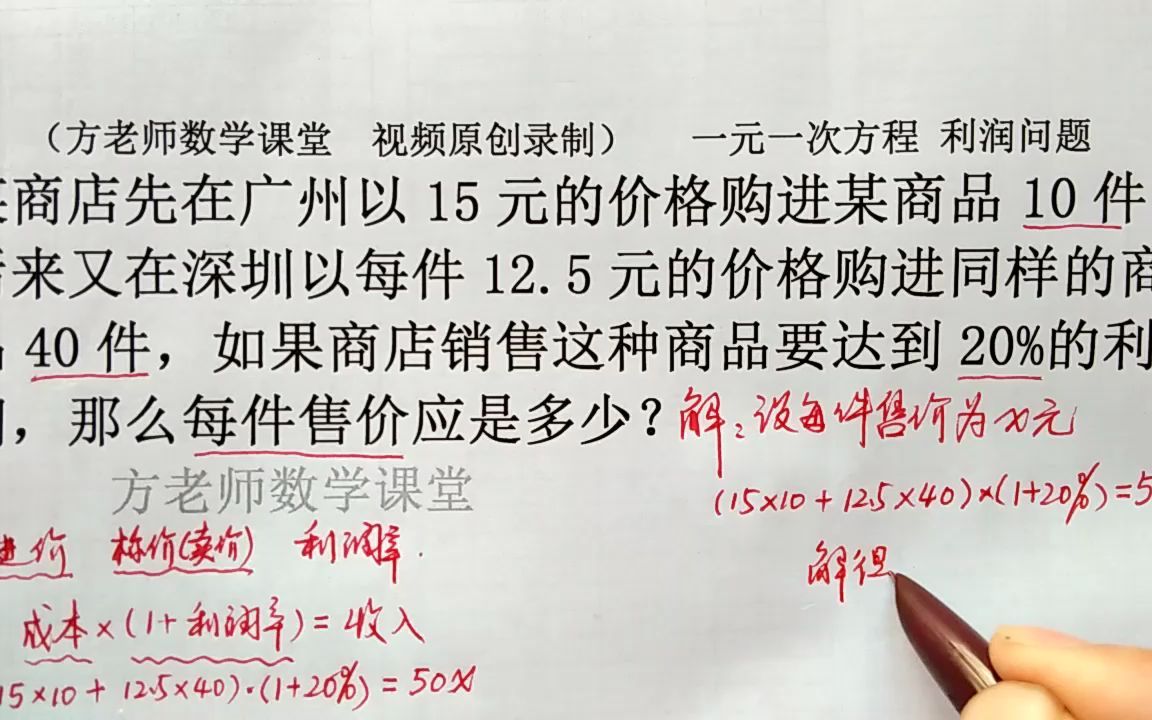 （方老师数学课堂　视频原创录制）　一元一次方程 利润问题
商店先在广州以 15 元的价格购进某商品 10 件
来又在深圳以每件 12.5 元的价格购进同样的商
40 件，如果商店销售这种商品要达到 20%的利
，那么每件售价应是多少？
解：设每件售价为x元
方老师数学课堂
(15×10+12.5×40)×(1+20%)=5
进价 标价(卖价) 利润率.
解得
成本×(1+利润率)=收入
15×10+12.5×40)·(1+20%)=50x